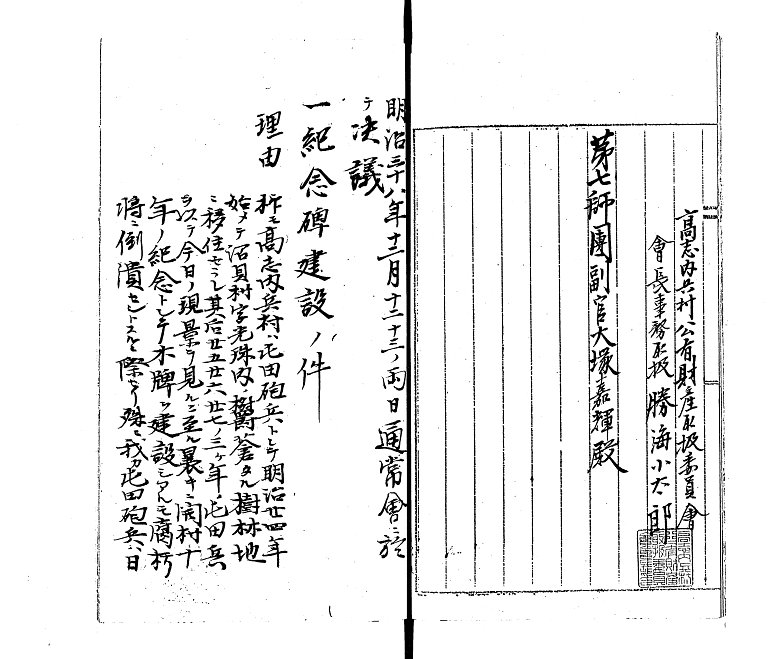 高志内兵村公有財産取扱委員會
會長事務取扱 勝海小太郎
第七師團副官大塚嘉輝殿
明治三十八年十二月十二十三ノ両日通常會ニ於
テ決議
一紀念碑建設ノ件
理由
抑モ高志内兵村ハ屯田砲兵トシテ明治廿四年
始メテ沼貝村字光珠内ノ樹林地
ニ移住セシ其后廿五廿六廿七ノ三ヶ年屯田兵
ヲ以テ今日ノ現景ヲ見ルニ至ル曩キニ開村十
年ノ紀念トシテ木牌ヲ建設シアルモ腐朽
将ニ倒潰セントスルノ際ナリ殊ニ我カ屯田砲兵ハ日